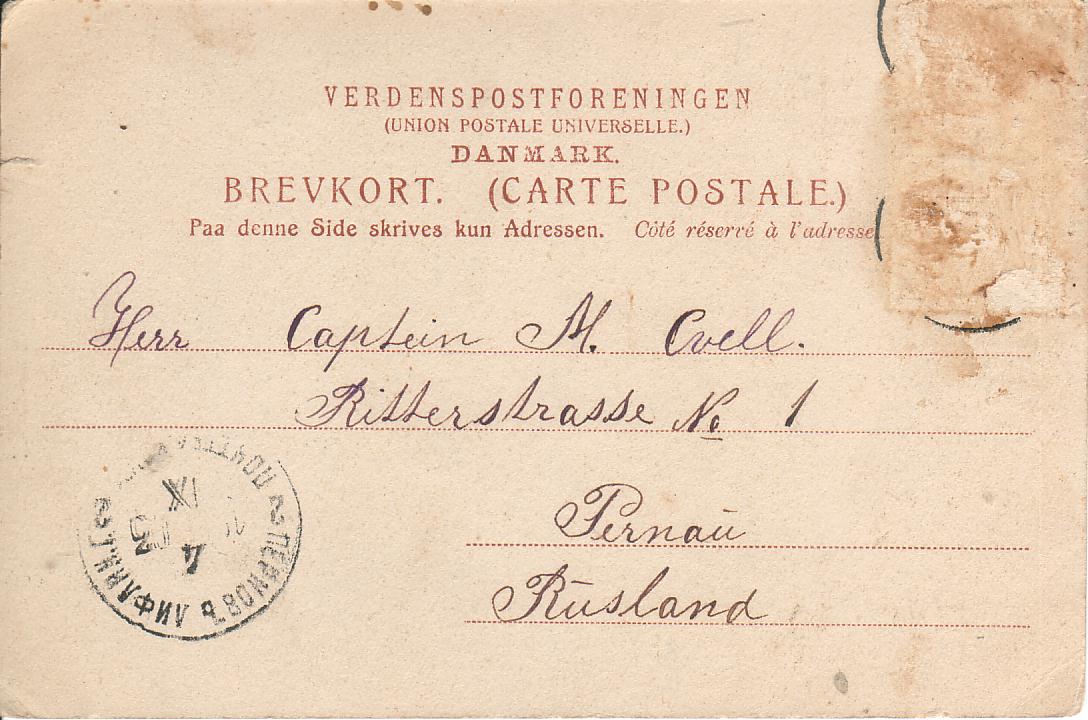 VERDENSPOSTFORENINGEN
(UNION POSTALE UNIVERSELLE.)
DANMARK.
BREVKORT. (CARTE POSTALE.)
Paa denne Side skrives kun Adressen. Côté réservé à l'adresse
Herr Captein M. Cvell.
Ritterstrasse No 1
Pernaŭ
Rŭsland
ПЕРНОВЪ ЛИФЛЯНД
XI
4